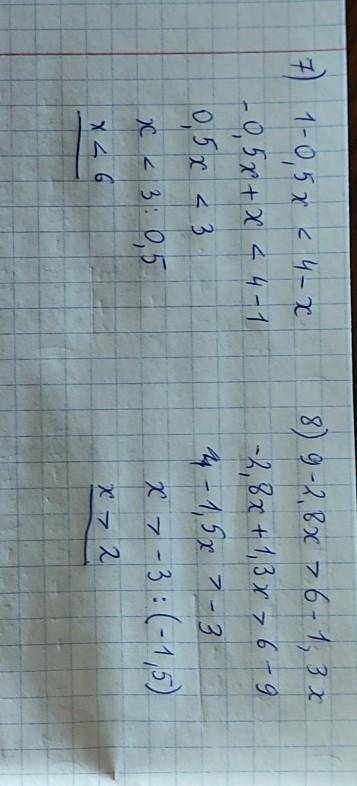 7) 1-0,5x < 4-x
-0,5x+x < 4-1
0,5x < 3
x < 3:0,5
x < 6
8) 9-2,8x > 6-1,3x
-2,8x+1,3x > 6-9
-1,5x > -3
x > -3:(-1,5)
x > 2